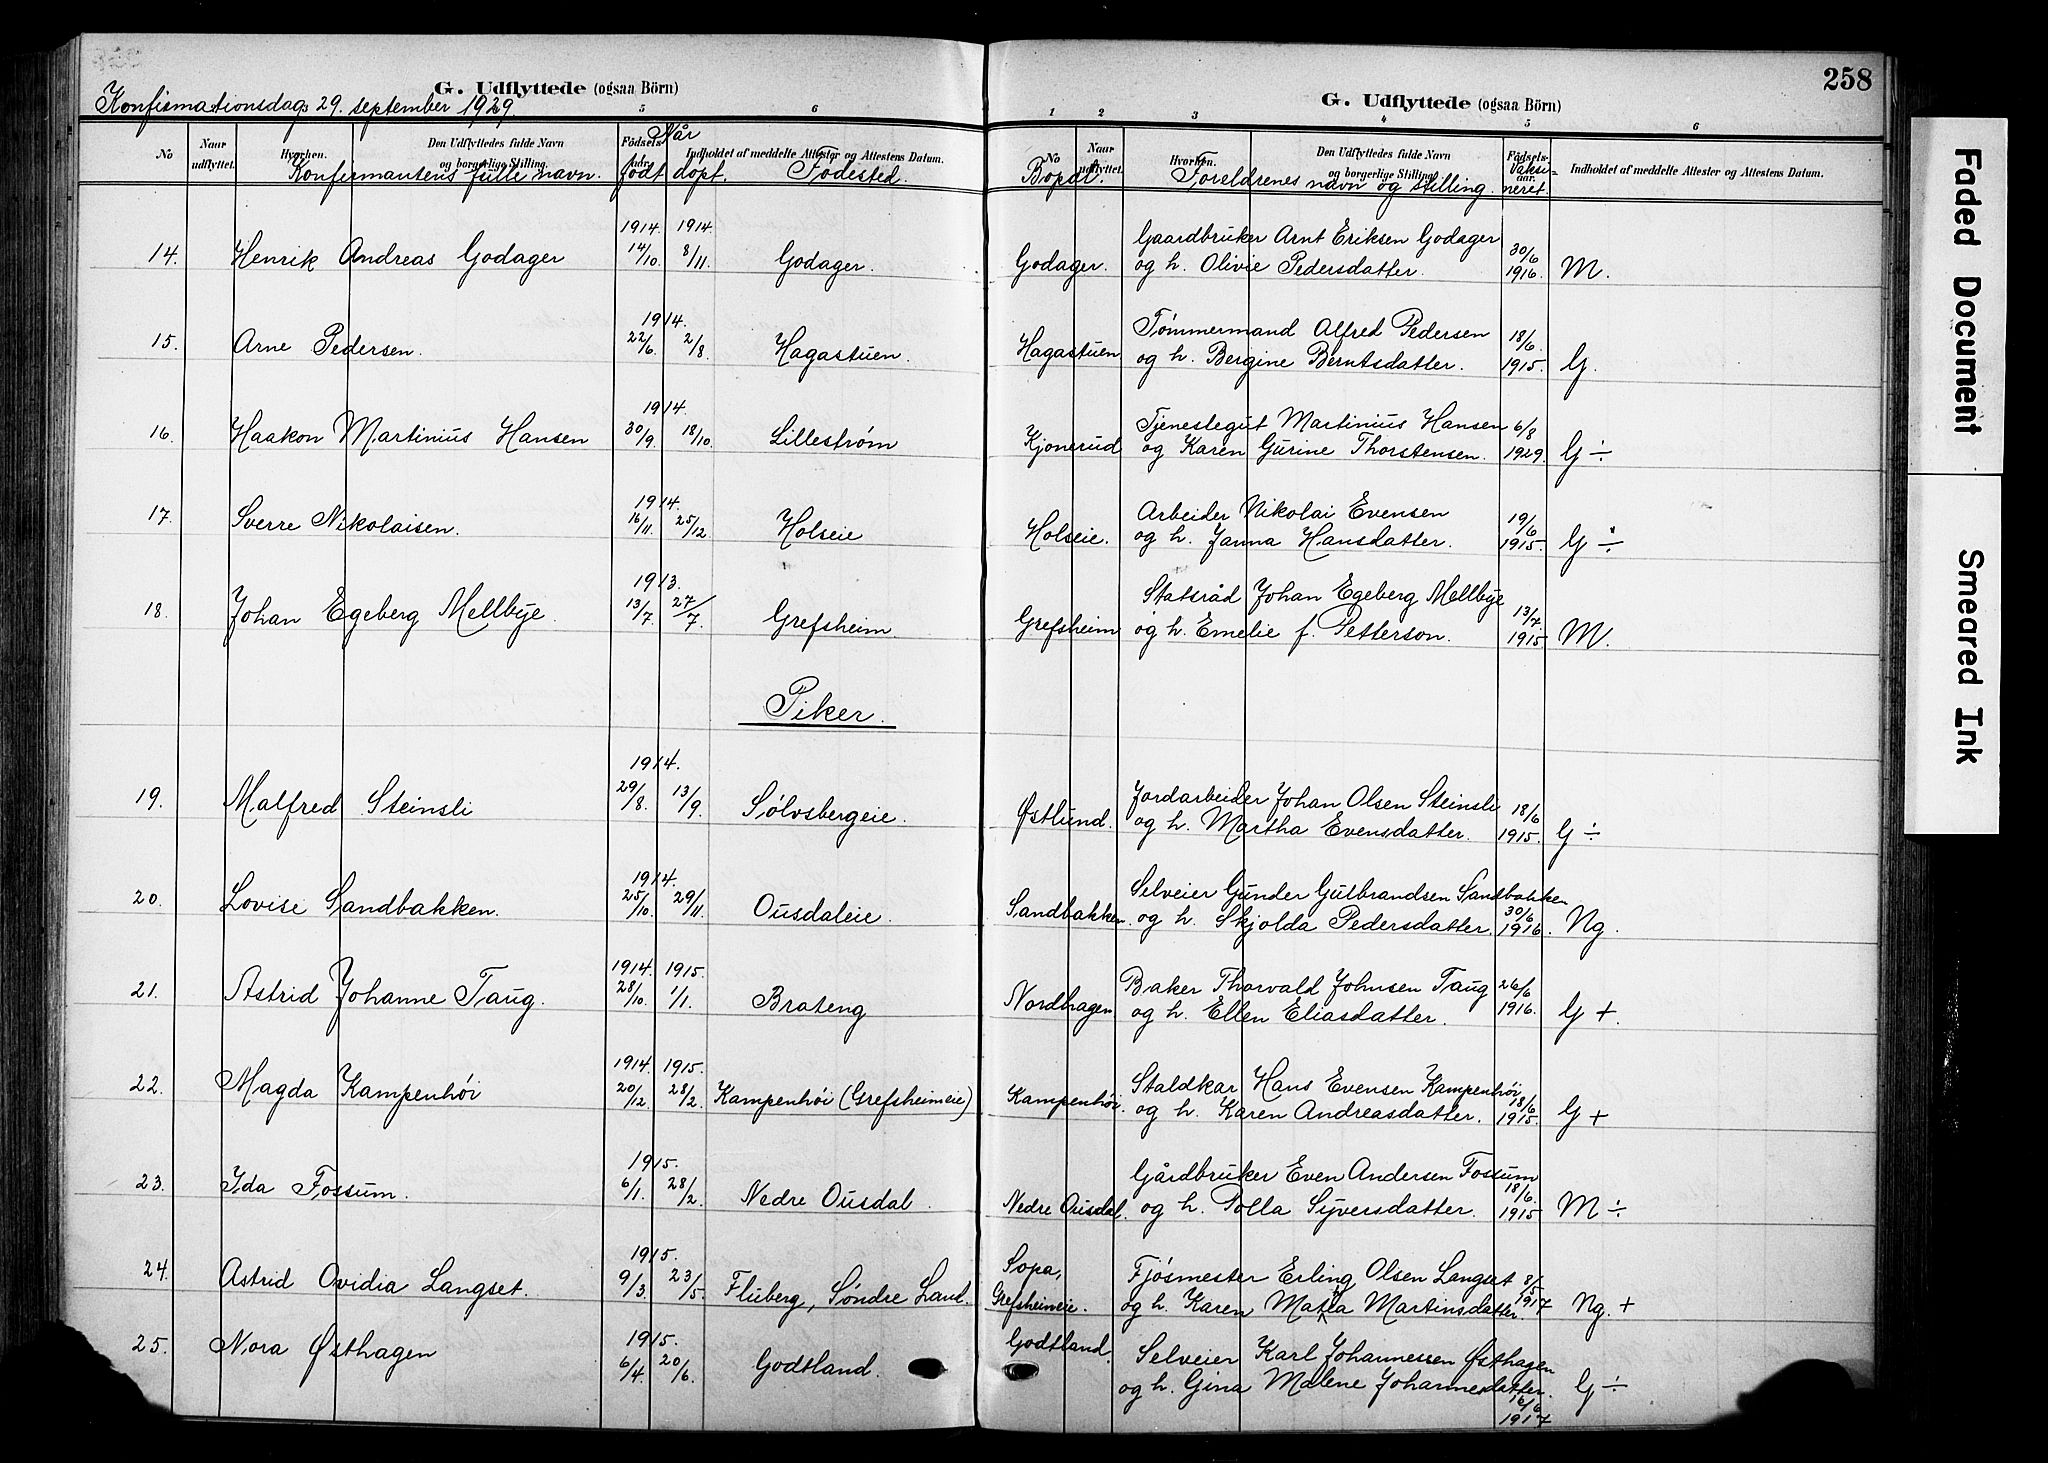 258
G. Udflyttede (ogsaa Börn)
Konfirmationsdag 29. september 1929.
5 6
No Naar udflyttet. Hvorhen. Den Udflyttedes fulde Navn og borgerlige Stilling. Födsels- aar. Indholdet af meddelte Attester og Attestens Datum.
Konfirmantens fulle navn. født Når døpt. Fødested.
G. Udflyttede (ogsaa Börn)
1 2 3 4 5 6
No Naar udflyttet. Hvorhen. Den Udflyttedes fulde Navn og borgerlige Stilling. Födsels- aar. Indholdet af meddelte Attester og Attestens Datum.
Bopæl. Foreldrenes navn og stilling. Vaksi- neret.
1914. 1914.
14. Henrik Andreas Godager 14/10. 8/11. Godager. Godager.
Gaardbruker Arnt Eriksen Godager
og h. Olivie Pedersdatter. 30/6 1916. M.
1914.
15. Arne Pedersen. 22/6. 2/8. Hagastuen. Hagastuen
Tømmermand Alfred Pedersen
og h. Bergine Berntsdatter. 18/6. 1915. G.
1914.
16. Haakon Martinius Hansen 30/9. 18/10. Lillestrøm Kjonerud
Tjenestegut Martinius Hansen
og Karen Gurine Thorstensen. 6/8 1929. G ÷
1914.
17. Sverre Nikolaisen. 16/11. 25/12 Holseie Holseie.
Arbeider Nikolai Evensen
og h. Janna Hansdatter. 19/6 1915. G ÷
1913.
18. Johan Egeberg Mellbye. 13/7. 27/7. Grefsheim Grefsheim
Statsråd Johan Egeberg Mellbye
og h. Emelie f. Petterson. 13/7. 1915. M.
Piker.
1914.
19. Malfred Steinsli 29/8. 13/9. Sølvsbergeie. Østlund.
Jordarbeider Johan Olsen Steinsli
og h. Martha Evensdatter. 18/6 1915. G ÷
1914.
20. Lovise Sandbakken. 25/10. 29/11. Ousdaleie. Sandbakken.
Selveier Gunder Gulbrandsen Sandbakken
og h. Skjolda Pedersdatter. 30/6 1916. Ng.
1914. 1915.
21. Astrid Johanne Taug. 28/10. 1/1. Brateng Nordhagen
Baker Thorvald Johnsen Taug
og h. Ellen Eliasdatter. 26/6 1916. G +.
1914. 1915.
22. Magda Kampenhöi 20/12. 28/2. Kampenhöi (Grefsheimeie) Kampenhöi.
Staldkar Hans Evensen Kampenhöi
og h. Karen Andreasdatter. 18/6 1915. G +
1915.
23. Ida Fossum. 6/1. 28/2. Nedre Ousdal. Nedre Ousdal.
Gårdbruker Even Andersen Fossum
og h. Polla Syversdatter. 18/6. 1915 M ÷
1915.
24. Astrid Ovidia Langset. 9/3. 23/5. Fluberg, Søndre Land. Sopa, Grefsheimeie.
Fjøsmester Erling Olsen Langset
og h. Karen Martinsdatter. 8/5 1917 Ng. +
1915.
25. Nora Østhagen 6/4. 20/6. Godtland. Godtland.
Selveier Karl Johannessen Østhagen
og h. Gina Malene Johannesdatter. G ÷
16/6 1917
Faded Document
Smeared Ink